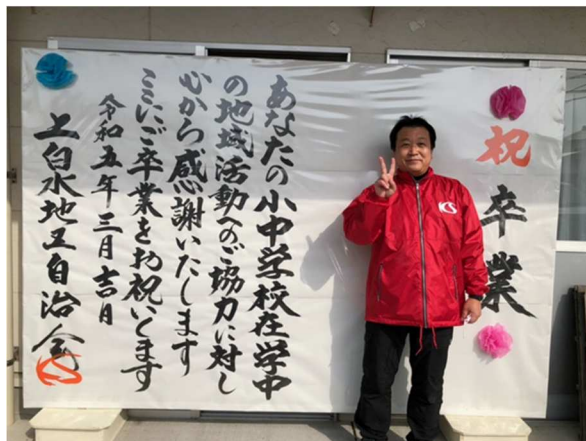 祝 卒業
あなたの小中学校在学中
の地域活動へのご協力に対し
心から感謝いたします
ここにご卒業をお祝いします
令和五年三月吉日
上白水地区自治会